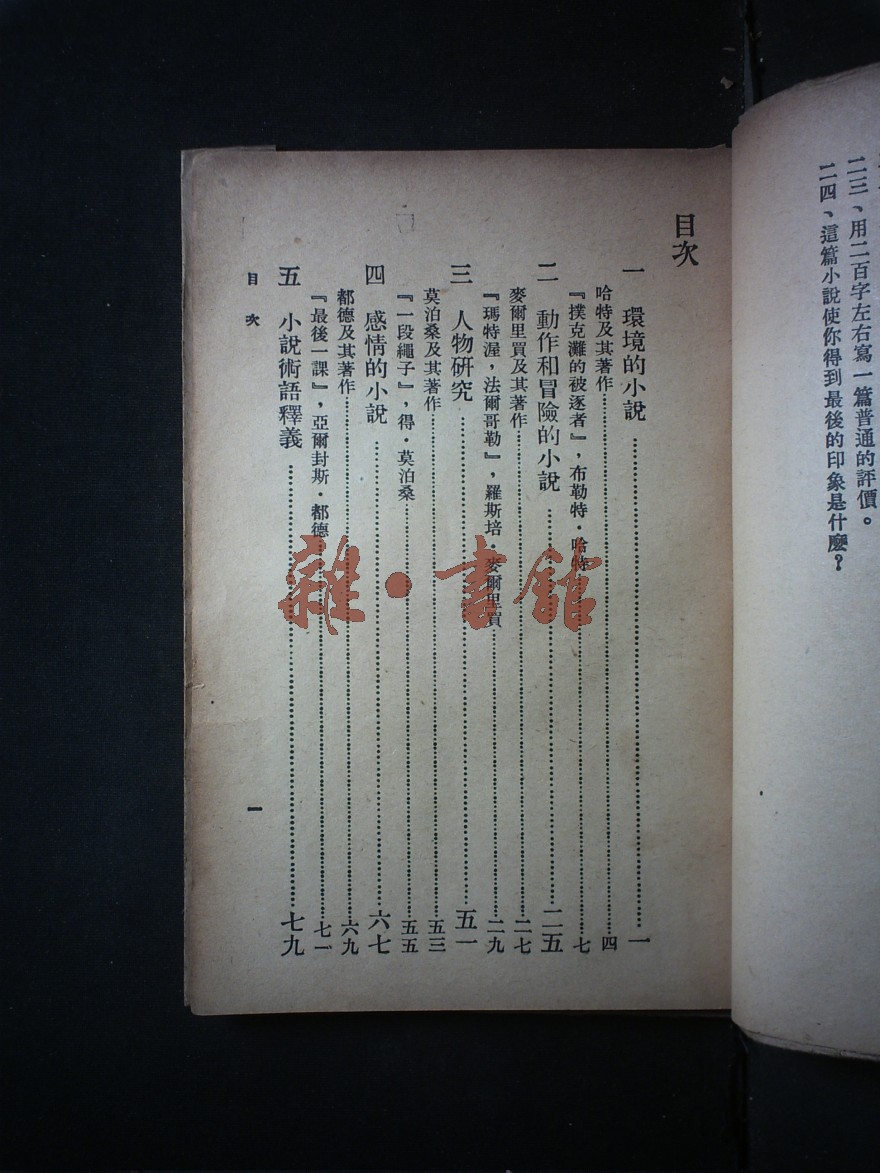 二三、用二百字左右寫一篇普通的評價。
二四、這篇小說使你得到最後的印象是什麼？
目次
一 環境的小說……一
哈特及其著作……四
『撲克灘的被逐者』，布勒特·哈特……七
二 動作和冒險的小說……二五
麥爾里買及其著作……二七
『瑪特渥，法爾哥勒』，羅斯培·麥爾里買……二九
三 人物研究……五一
莫泊桑及其著作……五三
『一段繩子』，得·莫泊桑……五五
四 感情的小說……六七
都德及其著作……六九
『最後一課』，亞爾封斯·都德……七一
五 小說術語釋義……七九
目次
一
雜·書館